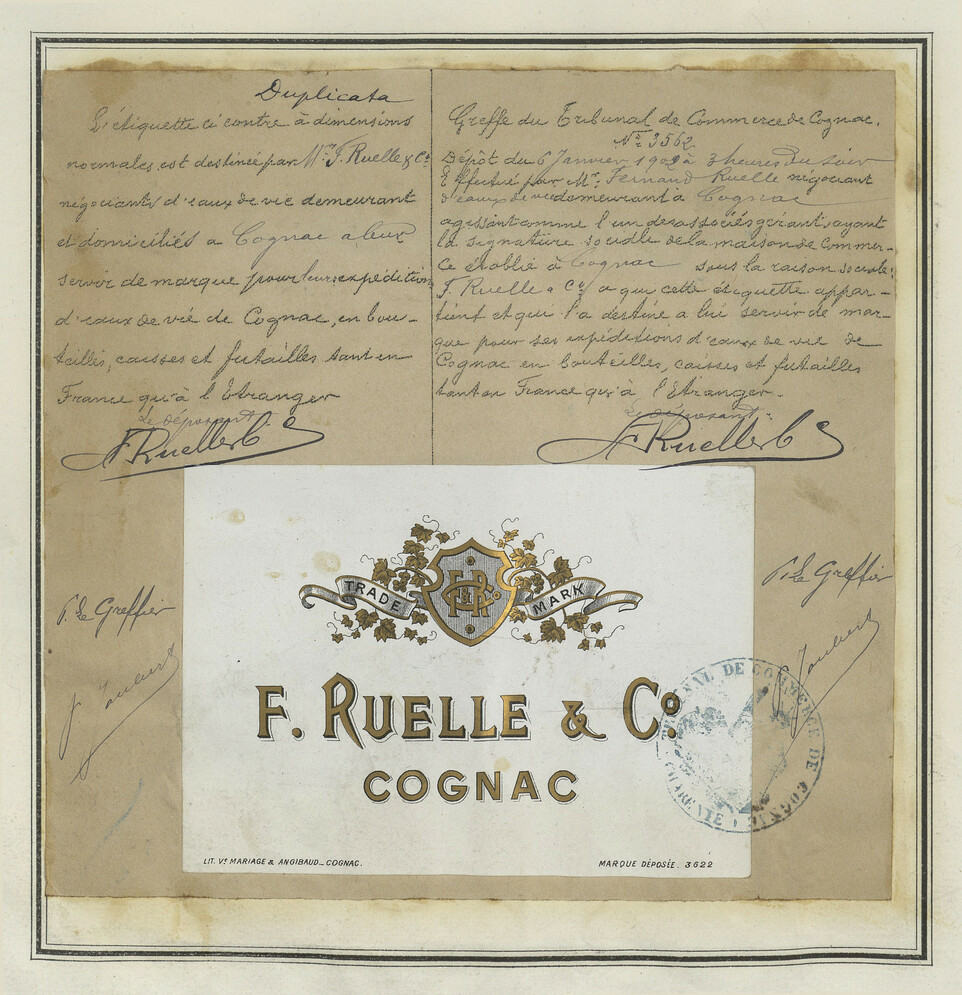 Duplicata
L'étiquette ci contre à dimensions
normales est destinée par Mrs F. Ruelle & Cie
négociants d'eaux de vie demeurant
et domiciliés a Cognac a leur
servir de marque pour leurs expéditions
d'eaux de vie de Cognac, en bou-
teilles, caisses et futailles tant en
France qu'à l'Etranger
Le déposant
F Ruelle & Co
P. Le Greffier
Greffe du Tribunal de Commerce de Cognac.
No 3562.
Dépôt du 6 Janvier à 3 heures du soir
Effectué par Mr. Fernand Ruelle négociant
d'eaux de vie demeurant à Cognac
agissant comme l'un des associés gérants, ayant
la signature sociale de la maison de Commer-
ce établie à Cognac sous la raison sociale:
F. Ruelle & Co, a qui cette étiquette appar-
tient et qui l'a destiné a lui servir de mar-
que pour ses expéditions d'eaux de vie de
Cognac en bouteilles, caisses et futailles
tant en France qu'à l'Etranger.
Le déposant
F Ruelle & Co
P. Le Greffier
TRADE MARK
F. RUELLE & Co
COGNAC
LIT. Ve MARIAGE & ANGIBAUD_COGNAC.
MARQUE DÉPOSÉE. 3622
TRIBUNAL DE COMMERCE DE COGNAC
CHARENTE